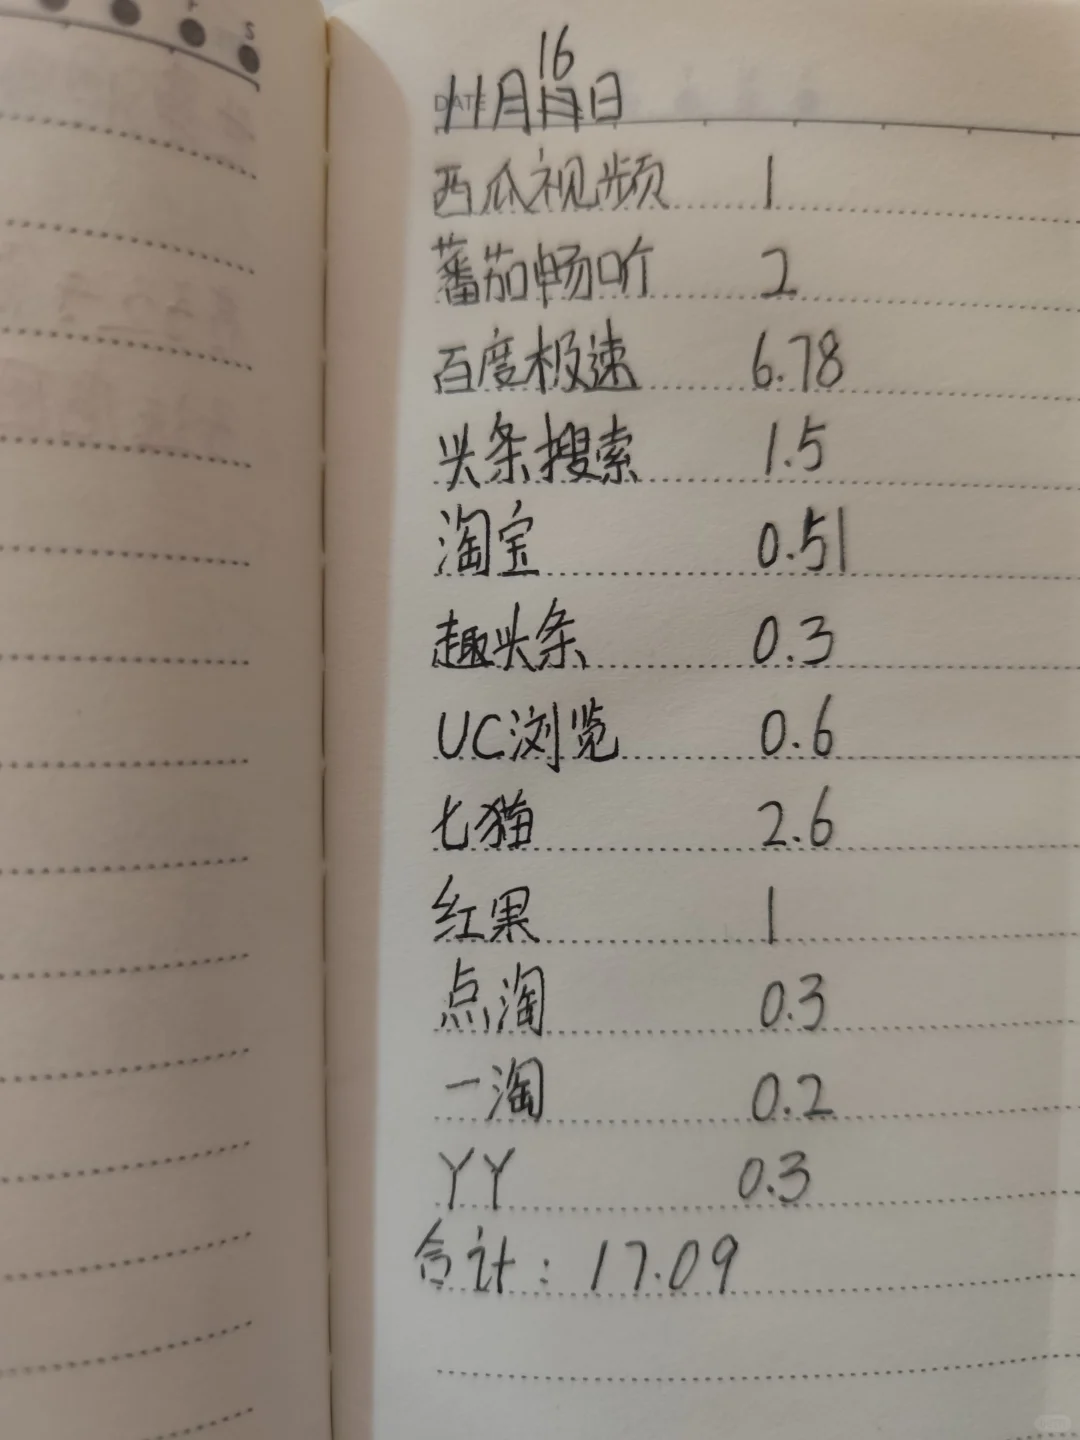 S
DATE
11月16日
西瓜视频 1
蕃茄畅听 2
百度极速 6.78
头条搜索 1.5
淘宝 0.51
趣头条 0.3
UC浏览 0.6
七猫 2.6
红果 1
点淘 0.3
一淘 0.2
YY 0.3
合计：17.09